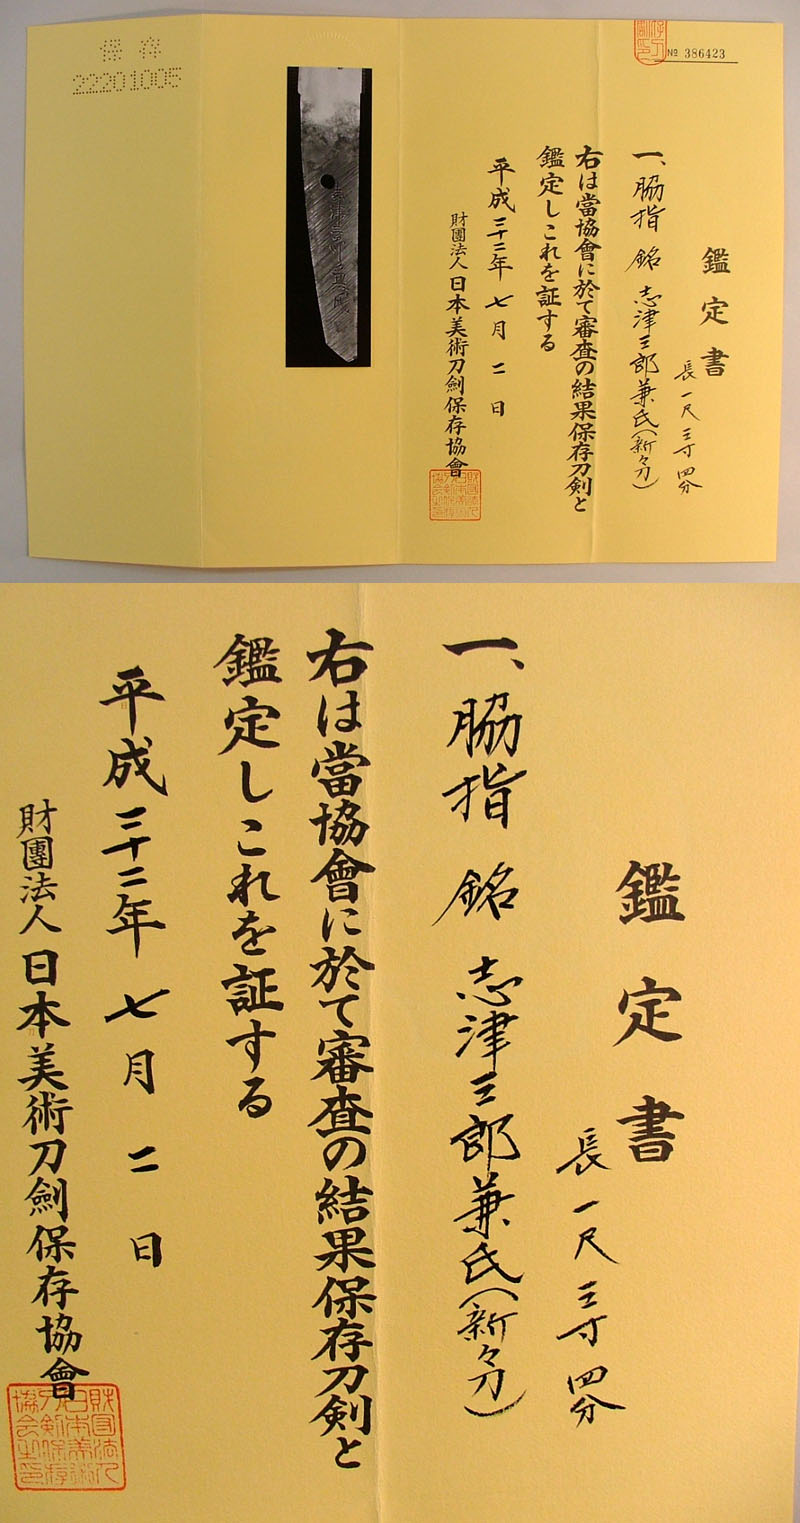 № 386423
鑑定書
長一尺三寸四分
一、脇指 銘 志津三郎兼氏(新々刀)
右は當協會に於て審査の結果保存刀剣と
鑑定しこれを証する
平成二十二年 七月 二日
財團法人日本美術刀劍保存協會
保存
22201005
鑑定書
長一尺三寸四分
一、脇指 銘 志津三郎兼氏(新々刀)
右は當協會に於て審査の結果保存刀剣と
鑑定しこれを証する
平成二十二年 七月 二日
財團法人日本美術刀劍保存協會